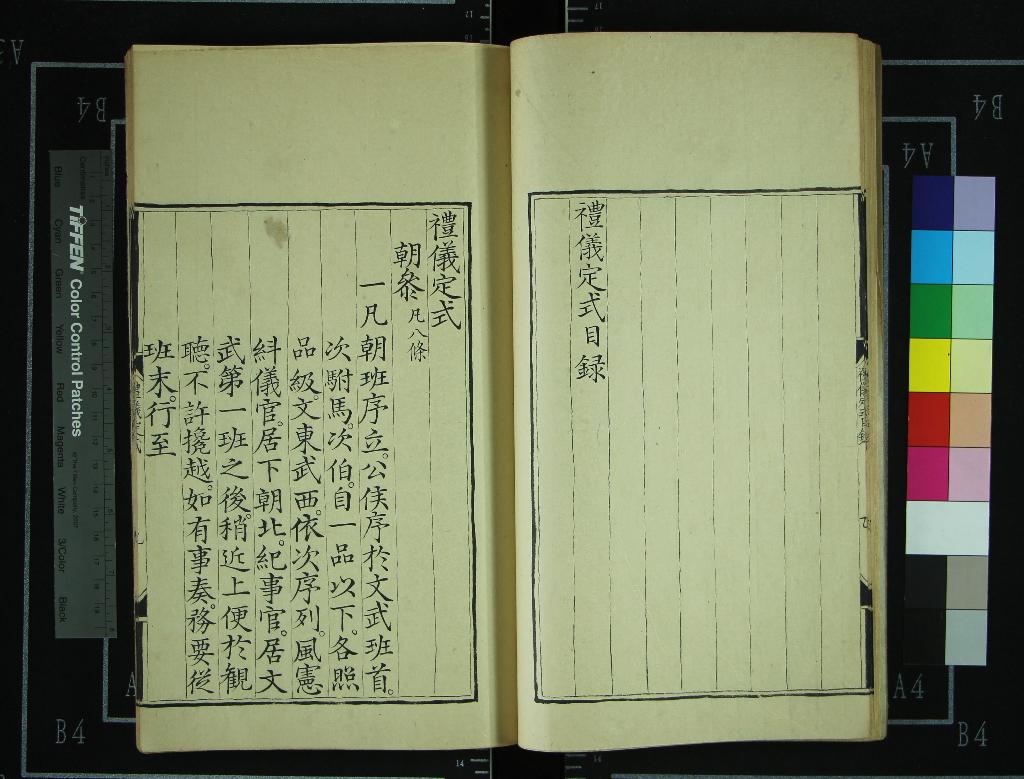 禮儀定式目録
禮儀定式
朝叅凡八條
一凡朝班序立。公侯序於文武班首。
次駙馬。次伯。自一品以下。各照
品級。文東武西。依次序列。風憲
糾儀官。居下朝北。紀事官。居文
武第一班之後。稍近上便於観
聽。不許攙越。如有事奏務。要從
班末。行至
B4
B4
A4
A4
B4
B4
TIFFEN Color Control Patches
Blue
Cyan
Green
Yellow
Red
Magenta
White
3/Color
Black